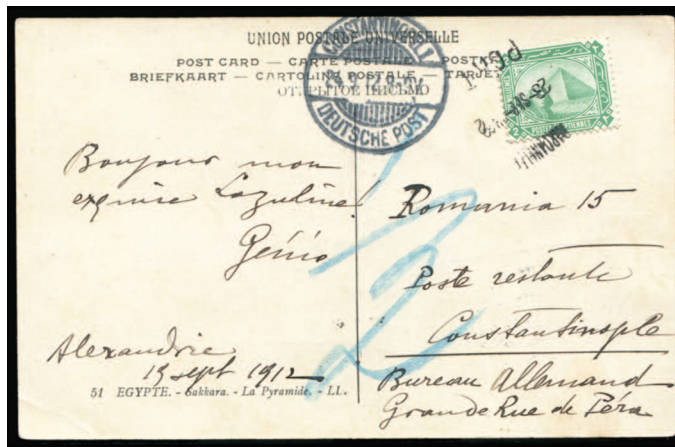 UNION POSTALE UNIVERSELLE
POST CARD — CARTE POSTALE — POSTK
BRIEFKAART — CARTOLINA POSTALE — TARJET
ОТКРЫТОЕ ПИСЬМО
CONSTANTINOPEL 1
9 12
DEUTSCHE POST
POSTES EGYPTIENNES
Bonjour mon
exquise Lazuline!
Génio
Alexandrie
Sept 1912
51 EGYPTE. - Sakkara. - La Pyramide. - LL.
Romania 15
Poste restante
Constantinople
Bureau Allemand
Grande Rue de Péra